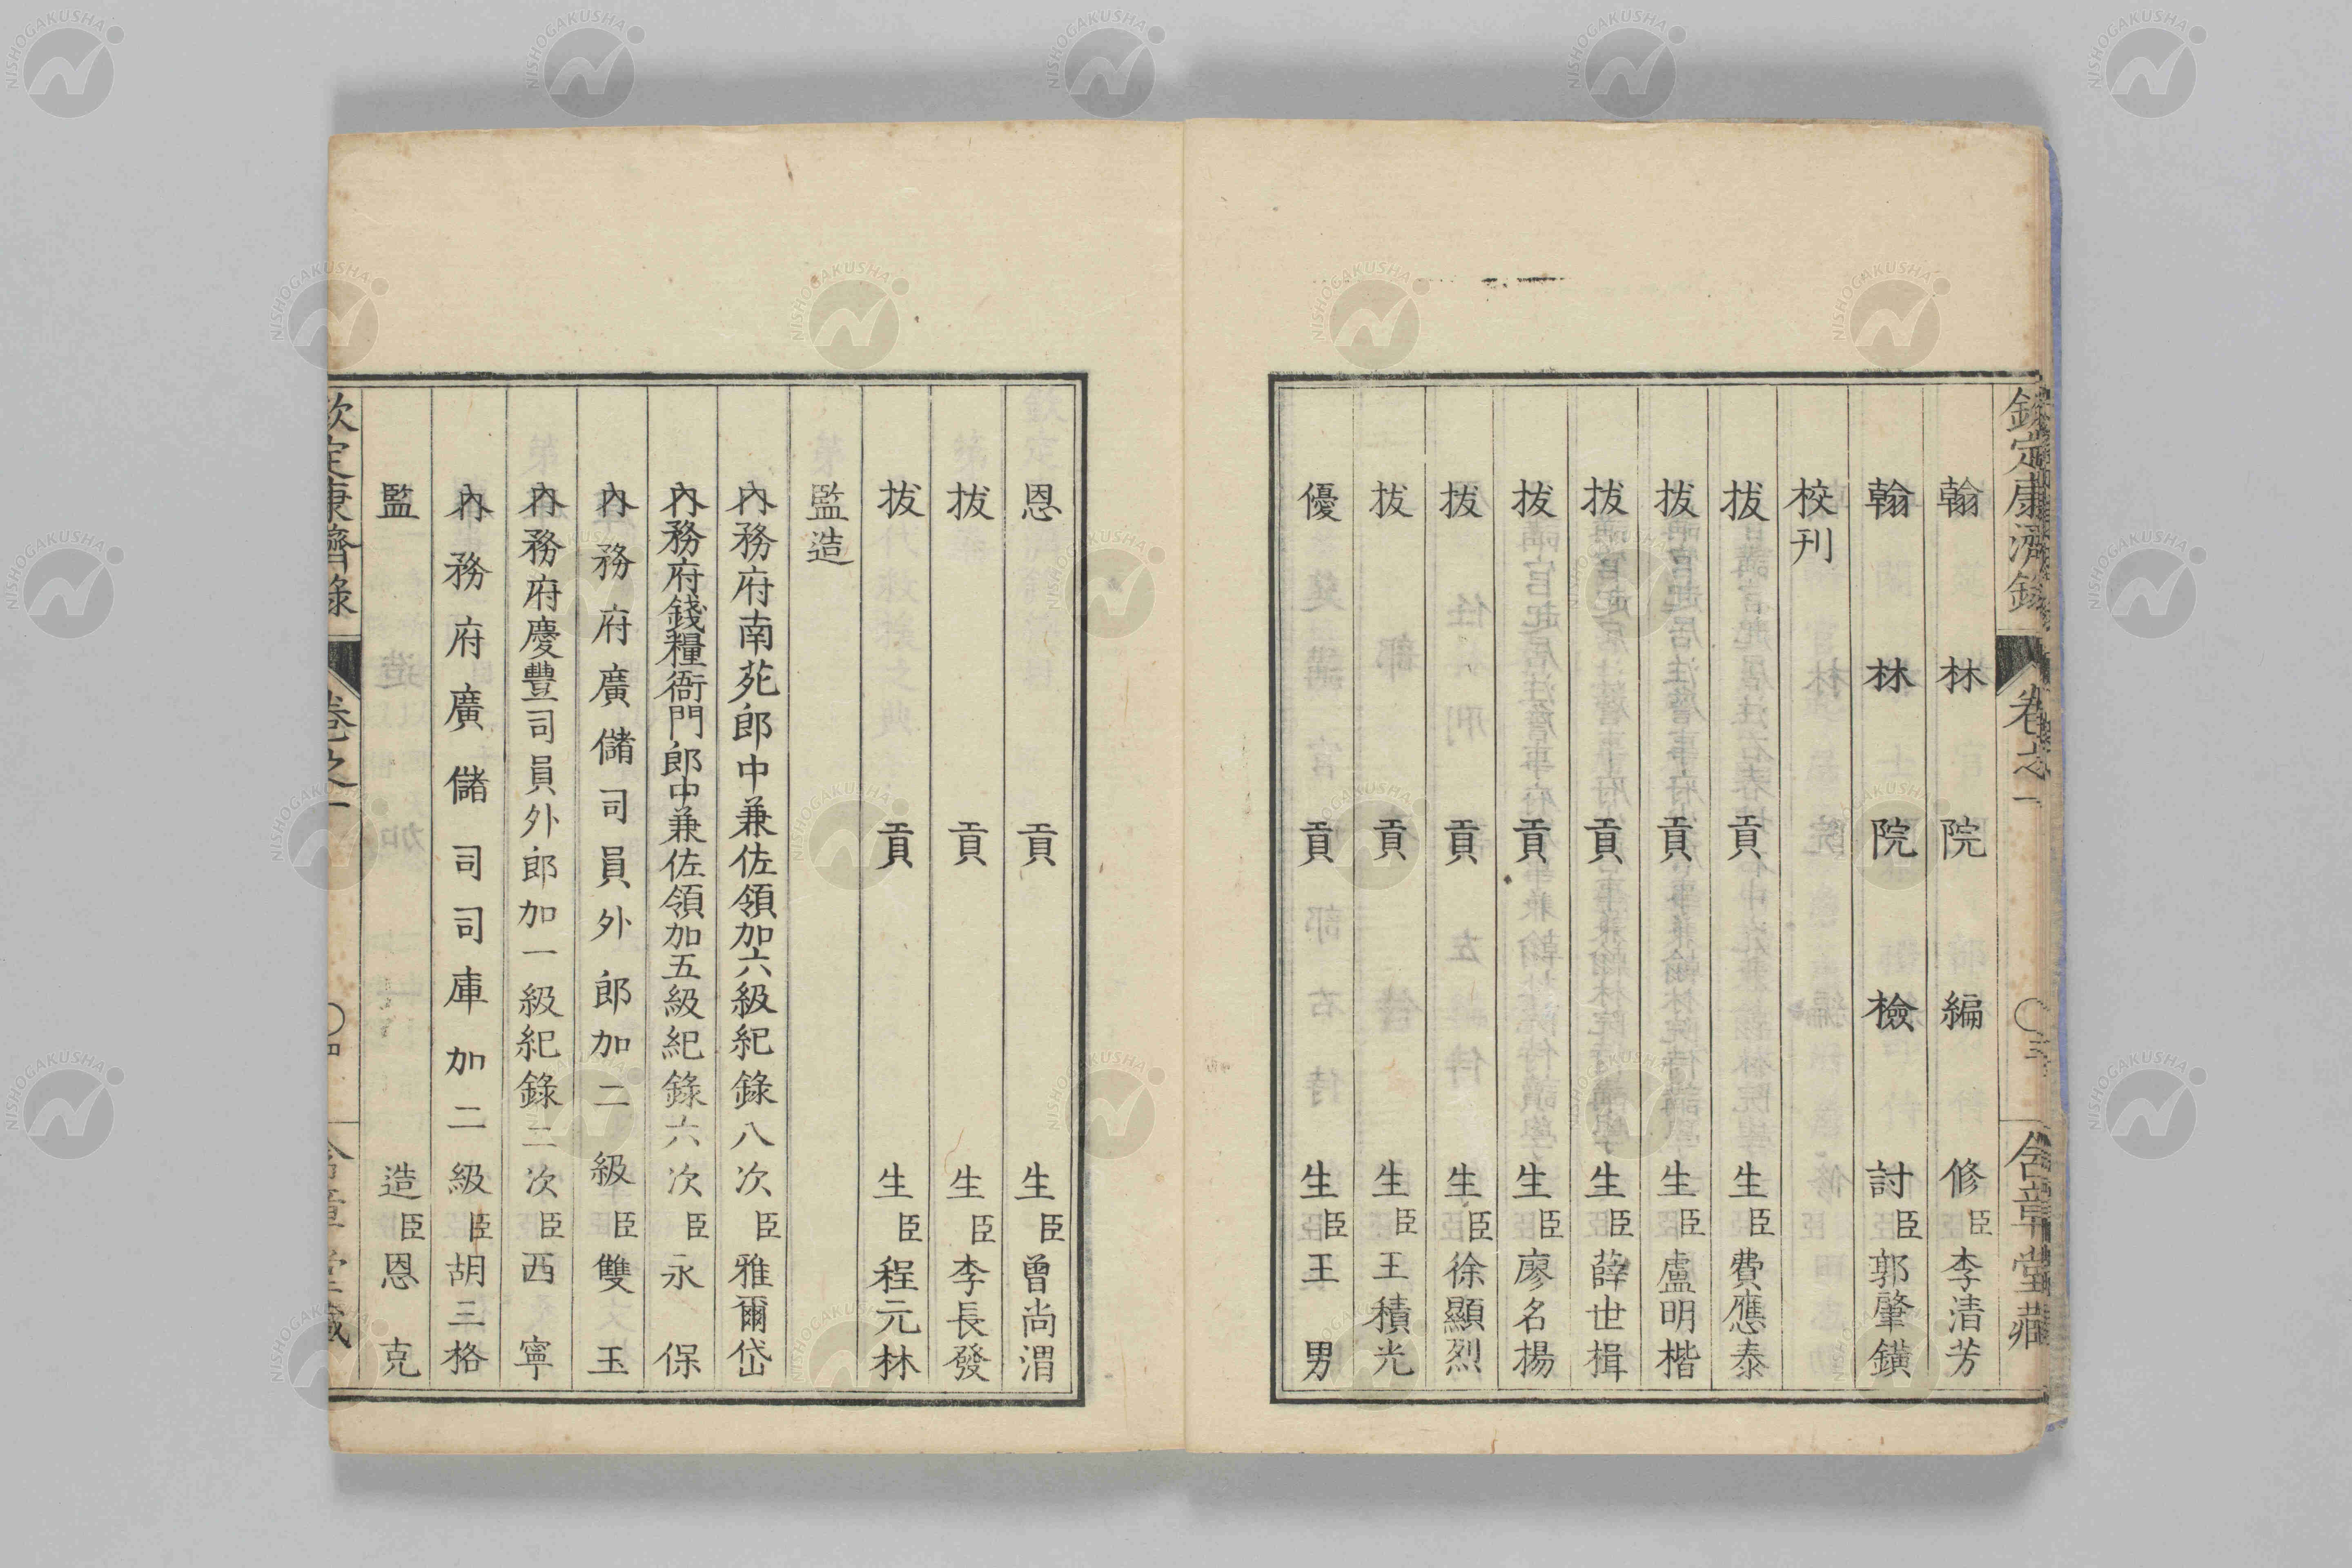 欽定康濟錄 卷之一 〇三 含章堂藏
翰林院編修臣李清芳
翰林院檢討臣郭肇鐄
校刊
拔貢生臣費應泰
拔貢生臣盧明楷
拔貢生臣薛世楫
拔貢生臣廖名揚
拔貢生臣徐顯烈
拔貢生臣王積光
優貢生臣王男
恩貢生臣曾尚渭
拔貢生臣李長發
拔貢生臣程元林
監造
內務府南苑郎中兼佐領加六級紀錄八次臣雅爾岱
內務府錢糧衙門郎中兼佐領加五級紀錄六次臣永保
內務府廣儲司員外郎加二級臣雙玉
內務府慶豐司員外郎加一級紀錄三次臣西寧
內務府廣儲司司庫加二級臣胡三格
監造臣恩克
欽定康濟錄 卷之一 〇四 含章堂藏
NISHOGAKUSHA